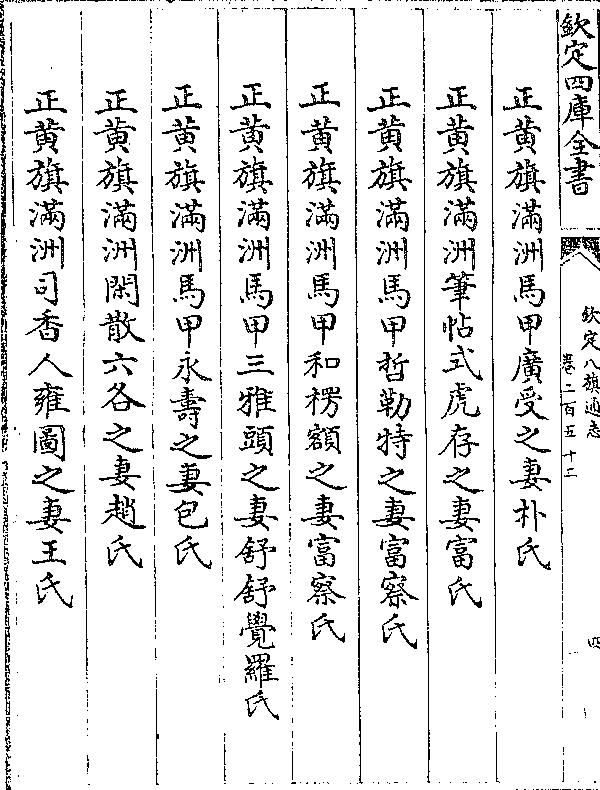 欽定四庫全書
欽定八旗通志
卷二百五十二
四
正黃旗滿洲馬甲廣受之妻朴氏
正黃旗滿洲筆帖式虎存之妻富氏
正黃旗滿洲馬甲哲勒特之妻富察氏
正黃旗滿洲馬甲和楞額之妻富察氏
正黃旗滿洲馬甲三雅頭之妻舒舒覺羅氏
正黃旗滿洲馬甲永壽之妻包氏
正黃旗滿洲閑散六各之妻趙氏
正黃旗滿洲司香人雍圖之妻王氏